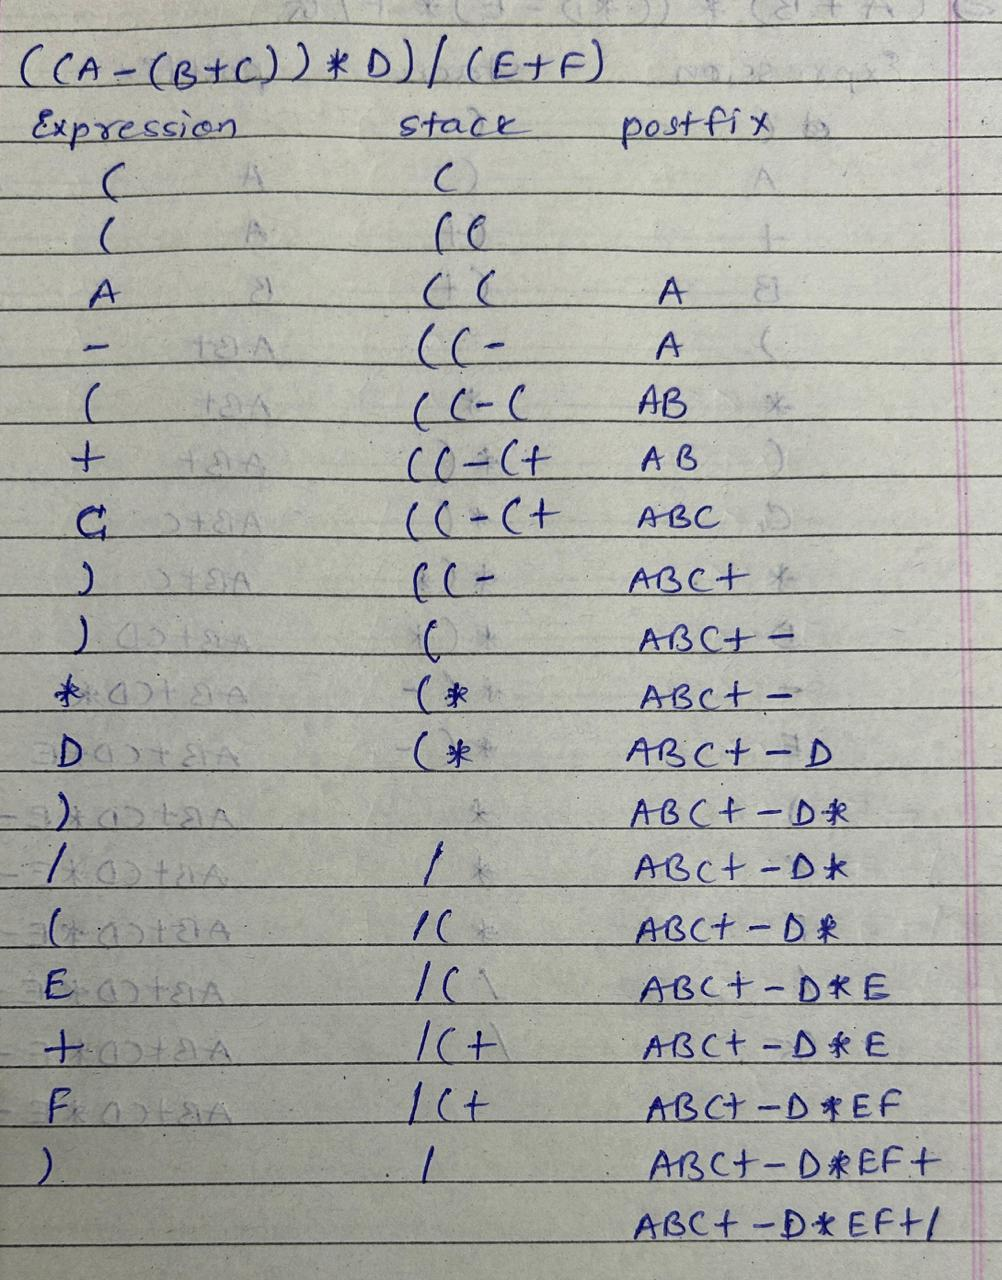 ((A-(B+C))*D)/(E+F)
Expression stack postfix
( (
( ((
A (( A
- ((- A
( ((-( AB
+ ((-(+ AB
C ((-(+ ABC
) ((- ABC+
) ( ABC+-
* (* ABC+-
D (* ABC+-D
) ABC+-D*
/ / ABC+-D*
( /( ABC+-D*
E /( ABC+-D*E
+ /(+ ABC+-D*E
F /(+ ABC+-D*EF
) / ABC+-D*EF+
ABC+-D*EF+/